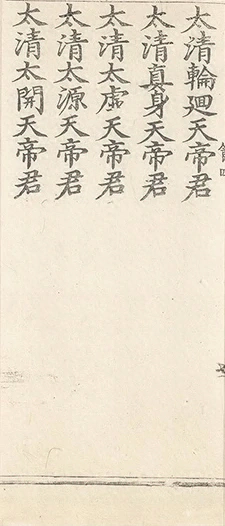 太清輪廻天帝君
太清真身天帝君
太清太虛天帝君
太清太源天帝君
太清太開天帝君